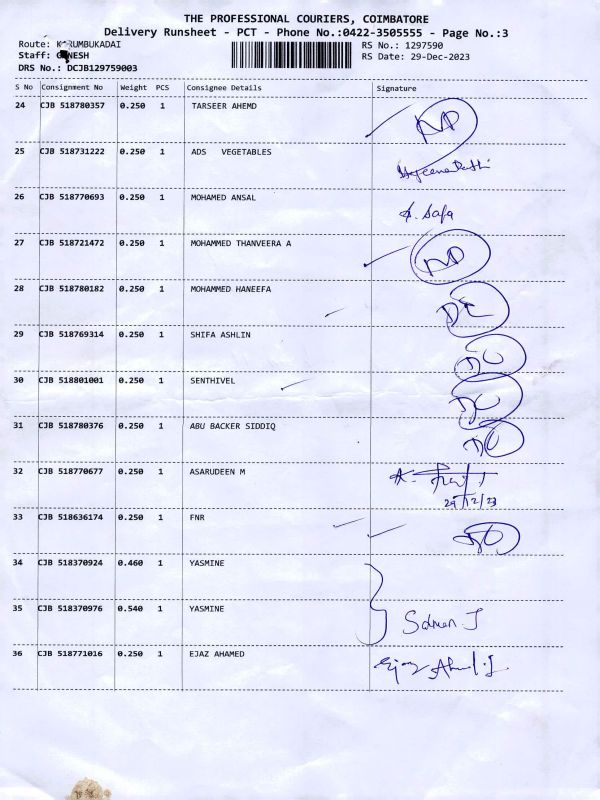 THE PROFESSIONAL COURIERS, COIMBATORE
Delivery Runsheet - PCT - Phone No.:0422-3505555 - Page No.:3
Route: KARUMBUKADAI RS No.: 1297590
Staff: GANESH RS Date: 29-Dec-2023
DRS No.: DCJB129759003
S No Consignment No Weight PCS Consignee Details Signature
24 CJB 518780357 0.250 1 TARSEER AHEMD
25 CJB 518731222 0.250 1 ADS VEGETABLES
26 CJB 518770693 0.250 1 MOHAMED ANSAL A. Safa
27 CJB 518721472 0.250 1 MOHAMMED THANVEERA A
28 CJB 518780182 0.250 1 MOHAMMED HANEEFA
29 CJB 518769314 0.250 1 SHIFA ASHLIN
30 CJB 518801001 0.250 1 SENTHIVEL
31 CJB 518780376 0.250 1 ABU BACKER SIDDIQ
32 CJB 518770677 0.250 1 ASARUDEEN M
29/12/23
33 CJB 518636174 0.250 1 FNR
34 CJB 518370924 0.460 1 YASMINE
35 CJB 518370976 0.540 1 YASMINE Salman J
36 CJB 518771016 0.250 1 EJAZ AHAMED Ejaz Ahmed.J